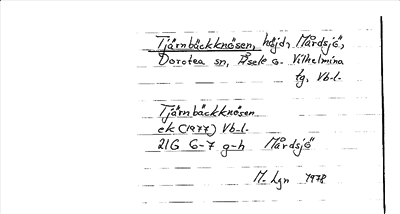 Tjärnbäckknösen, höjd, Mårdsjö,
Dorotea sn, Åsele o. Vilhelmina
tg, Vb-l.
Tjärnbäckknösen
ek (1977) Vb-l.
21G 6-7 g-h Mårdsjö
M. Lgn 1978